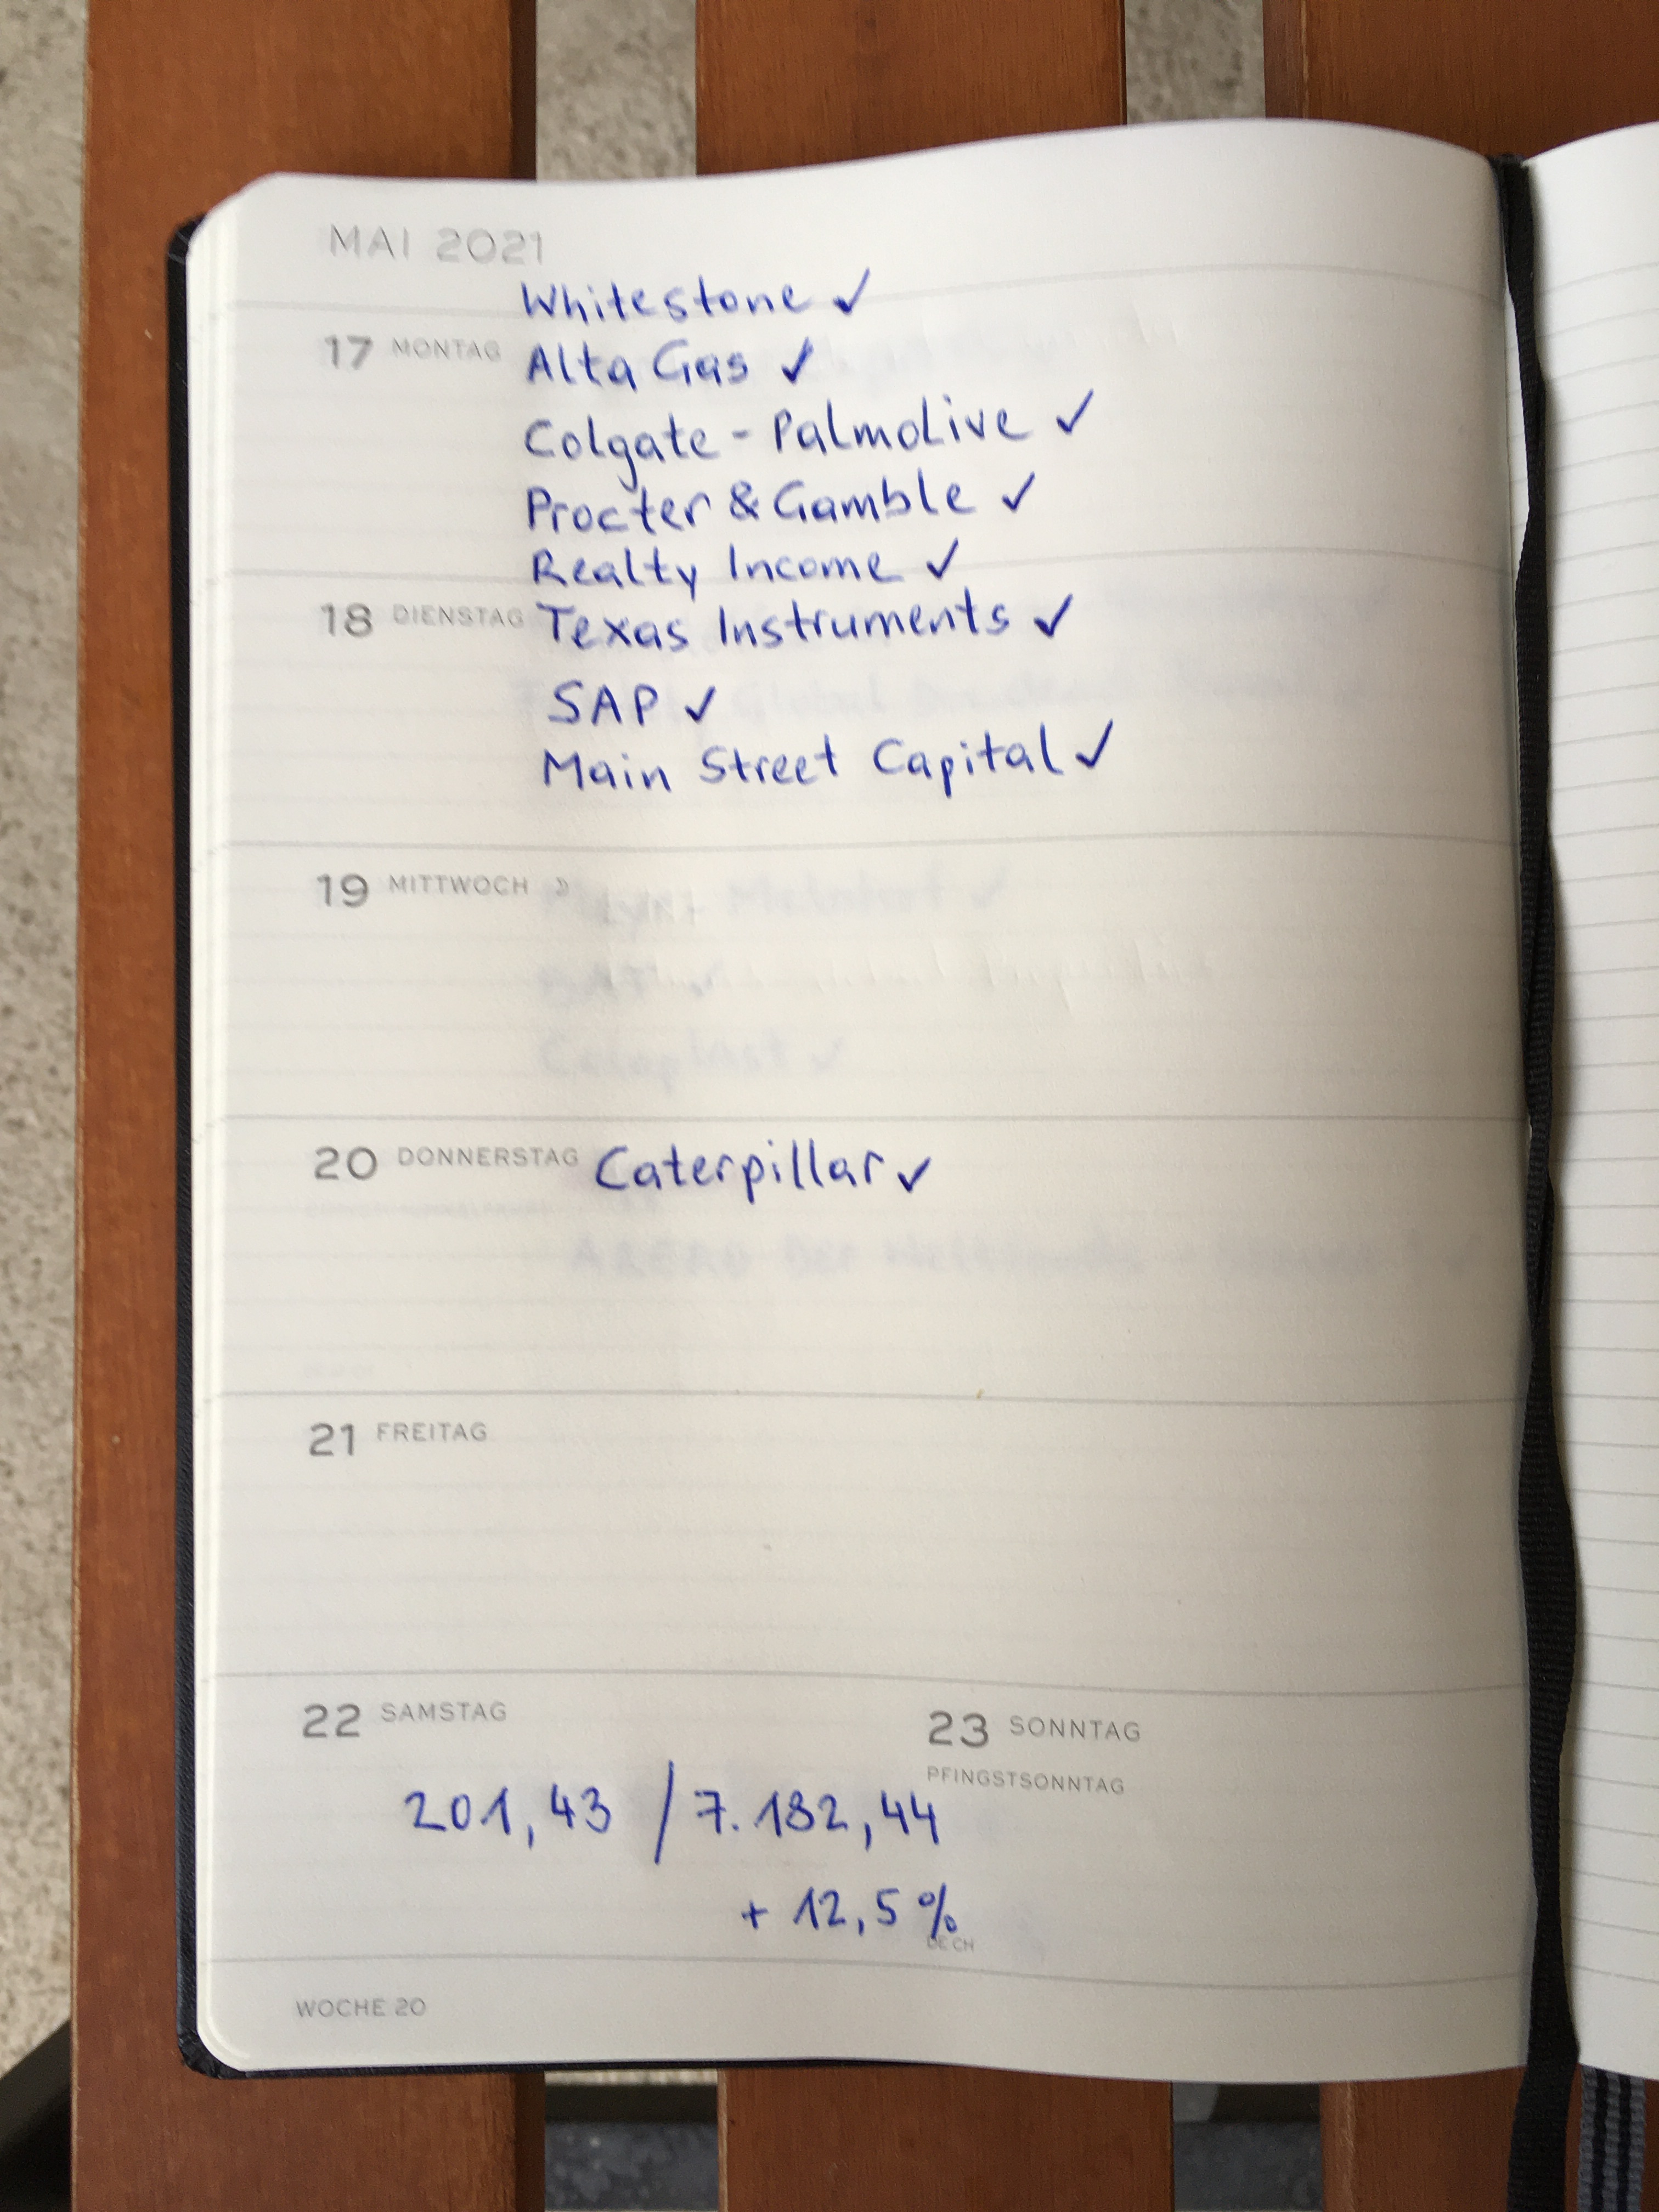 MAI 2021
Whitestone ✓
17 MONTAG Alta Gas ✓
Colgate - Palmolive ✓
Procter & Gamble ✓
Realty Income ✓
18 DIENSTAG Texas Instruments ✓
SAP ✓
Main Street Capital ✓
19 MITTWOCH
20 DONNERSTAG Caterpillar ✓
21 FREITAG
22 SAMSTAG
23 SONNTAG
PFINGSTSONNTAG
201,43 / 7.182,44
+ 12,5 %
DE CH
WOCHE 20